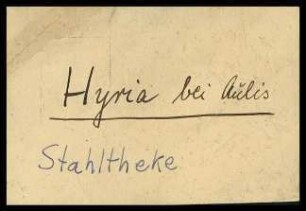 Hyria bei Aulis
Stahltheke